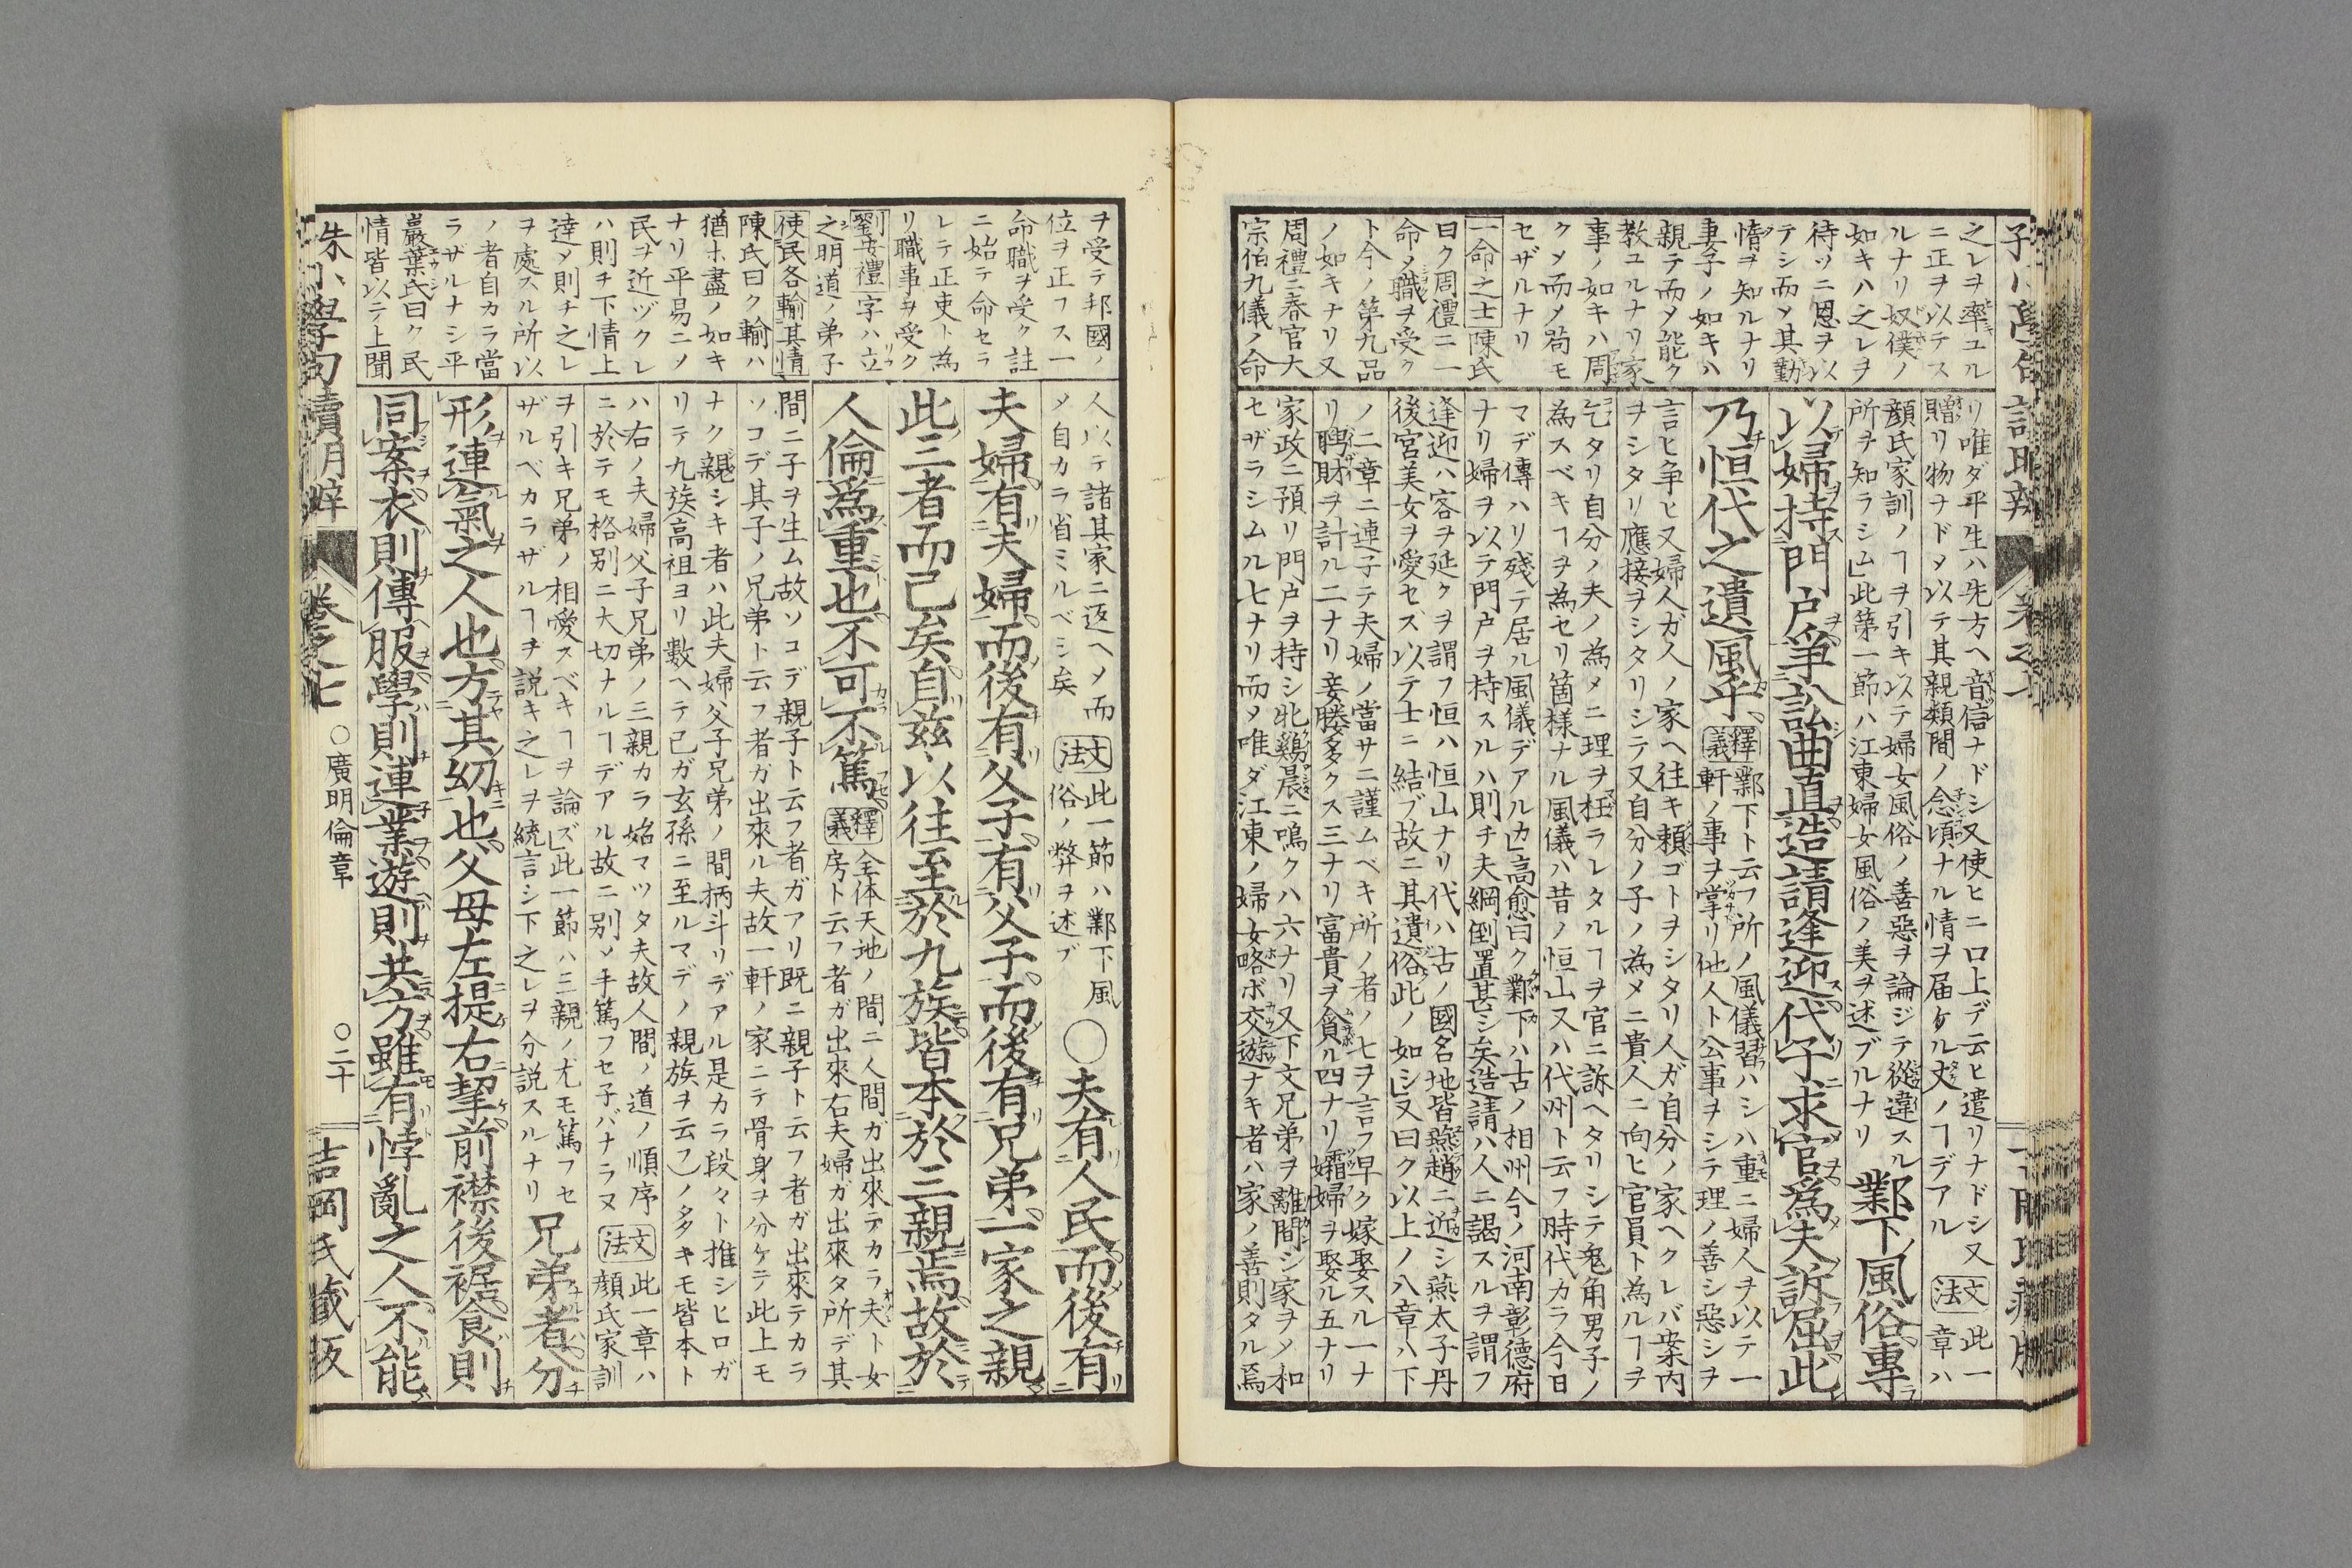 之レヲ率ユル
ニ正ヲ以テス
ルナリ奴僕ノ
如キハ之レヲ
待ツニ恩ヲ以
テシ而〆其勤
惰ヲ知ルナリ
妻子ノ如キハ
親テ而〆能ク
教ユルナリ家
事ノ如キハ周
ク〆而〆苟モ
セザルナリ
一命之士 陳氏
曰ク周禮ニ一
命ノ職ヲ受ク
ト今ノ第九品
ノ如キナリ又
周禮ニ春官大
宗伯九儀ノ命
リ唯ダ平生ハ先方ヘ音信ナドシ又使ヒニ口上デ云ヒ遣リナドシ又
贈リ物ヲド〆以テ其親類間ノ念頃ナル情ヲ届ケル丈ノヿデアル
文法 此一章ハ
顔氏家訓ノヿヲ引キ以テ婦女風俗ノ善惡ヲ論ジテ從違スル
所ヲ知ラシム此第一節ハ江東婦女風俗ノ美ヲ述ブルナリ
鄴下風俗專
以婦持門戶爭訟曲直造請逢迎代子求官爲夫訴屈此
乃恒代之遺風乎
釋義 鄴下ト云フ所ノ風儀習ハシハ重ニ婦人ヲ以テ一
軒ノ事ヲ掌リ他人ト公事ヲシテ理ノ善シ惡シヲ
言ヒ争ヒ又婦人ガ人ノ家ヘ往キ頼ゴトヲシタリ人ガ自分ノ家ヘクレバ案内
ヲシタリ應接ヲシタリシテ又自分ノ子ノ為メニ貴人ニ向ヒ官員ト為ルヿヲ
乞タリ自分ノ夫ノ為メニ理ヲ枉ラレタルヿヲ官ニ訴ヘタリシテ兎角男子ノ
為スベキヿヲ為セリ箇様ナル風儀ハ昔ノ恒山又ハ代州ト云フ時代カラ今日
マデ傳ハリ殘テ居ル風儀デアルカ高愈曰ク鄴下ハ古ノ相州今ノ河南彰德府
ナリ婦ヲ以テ門户ヲ持スルハ則チ夫綱倒置甚シ矣造請ハ人ニ謁スルヲ謂フ
逢迎ハ客ヲ延クヲ謂フ恒ハ恒山ナリ代ハ古ノ國名地皆燕趙ニ近シ燕太子丹
後宮美女ヲ愛セズ以テ士ニ結ブ故ニ其遺俗此ノ如シ又曰ク以上ノ八章ハ下
ノ二章ニ連子テ夫婦ノ當サニ謹ムベキ所ノ者ノ七ヲ言フ早ク嫁娶スル一ナ
リ聘財ヲ計ル二ナリ妾媵多クス三ナリ富貴ヲ貪ル四ナリ孀婦ヲ娶ル五ナリ
家政ニ預リ門户ヲ持シ牝鷄晨ニ鳴クハ六ナリ又下文兄弟ヲ離間シ家ヲ〆和
セザラシムル七ナリ而〆唯ダ江東ノ婦女略ボ交遊ナキ者ハ家ノ善則タル焉
ヲ受テ邦國ノ
位ヲ正フス一
命職ヲ受ク註
ニ始テ命セラ
レテ正吏ト為
リ職事ヲ受ク
劉安禮 字ハ立
之明道ノ弟子
使民各輸其情
陳氏曰ク輸ハ
猶ホ盡ノ如キ
ナリ平易ニノ
民ヲ近ヅクレ
ハ則チ下情上
達〆則チ之レ
ヲ處スル所以
ノ者自カラ當
ラザルナシ平
巖葉氏曰ク民
情皆以テ上聞
人以テ諸其家ニ返ヘ〆而
〆自カラ省ミルベシ矣
文法 此一節ハ鄴下風
俗ノ弊ヲ述ブ
○夫有人民而後有
夫婦有夫婦而後有父子有父子而後有兄弟一家之親
此三者而已矣自茲以往至於九族皆本於三親焉故於
人倫爲重也不可不篤
釋義 全体天地ノ間ニ人間ガ出來テカラ夫ト女
房ト云フ者ガ出來右夫婦ガ出來タ所デ其
間ニ子ヲ生ム故ソコデ親子ト云フ者ガアリ既ニ親子ト云フ者ガ出來テカラ
ソコデ其子ノ兄弟ト云フ者ガ出來ル夫故一軒ノ家ニテ骨身ヲ分ケテ此上モ
ナク親シキ者ハ此夫婦父子兄弟ノ間柄斗リデアル是カラ段々ト推シヒロガ
リテ九族(高祖ヨリ數ヘテ己ガ玄孫ニ至ルマデノ親族ヲ云フ)ノ多キモ皆本ト
ハ右ノ夫婦父子兄弟ノ三親カラ始マツタ夫故人間ノ道ノ順序
ニ於テモ格别ニ大切ナルヿデアル故ニ别〆手篤フセ子バナラヌ
文法 此一章ハ
顔氏家訓
ヲ引キ兄弟ノ相愛スベキヿヲ論ズ此一節ハ三親ノ尤モ篤フセ
ザルベカラザルヿヲ説キ之レヲ統言シ下之レヲ分説スルナリ
兄弟者分
形連氣之人也方其幼也父母左提右挈前襟後裾食則
同案衣則傳服學則連業遊則共方雖有悖亂之人不能
朱小學句讀明辨 卷之七 ○廣明倫章 ○二十 吉岡氏藏版